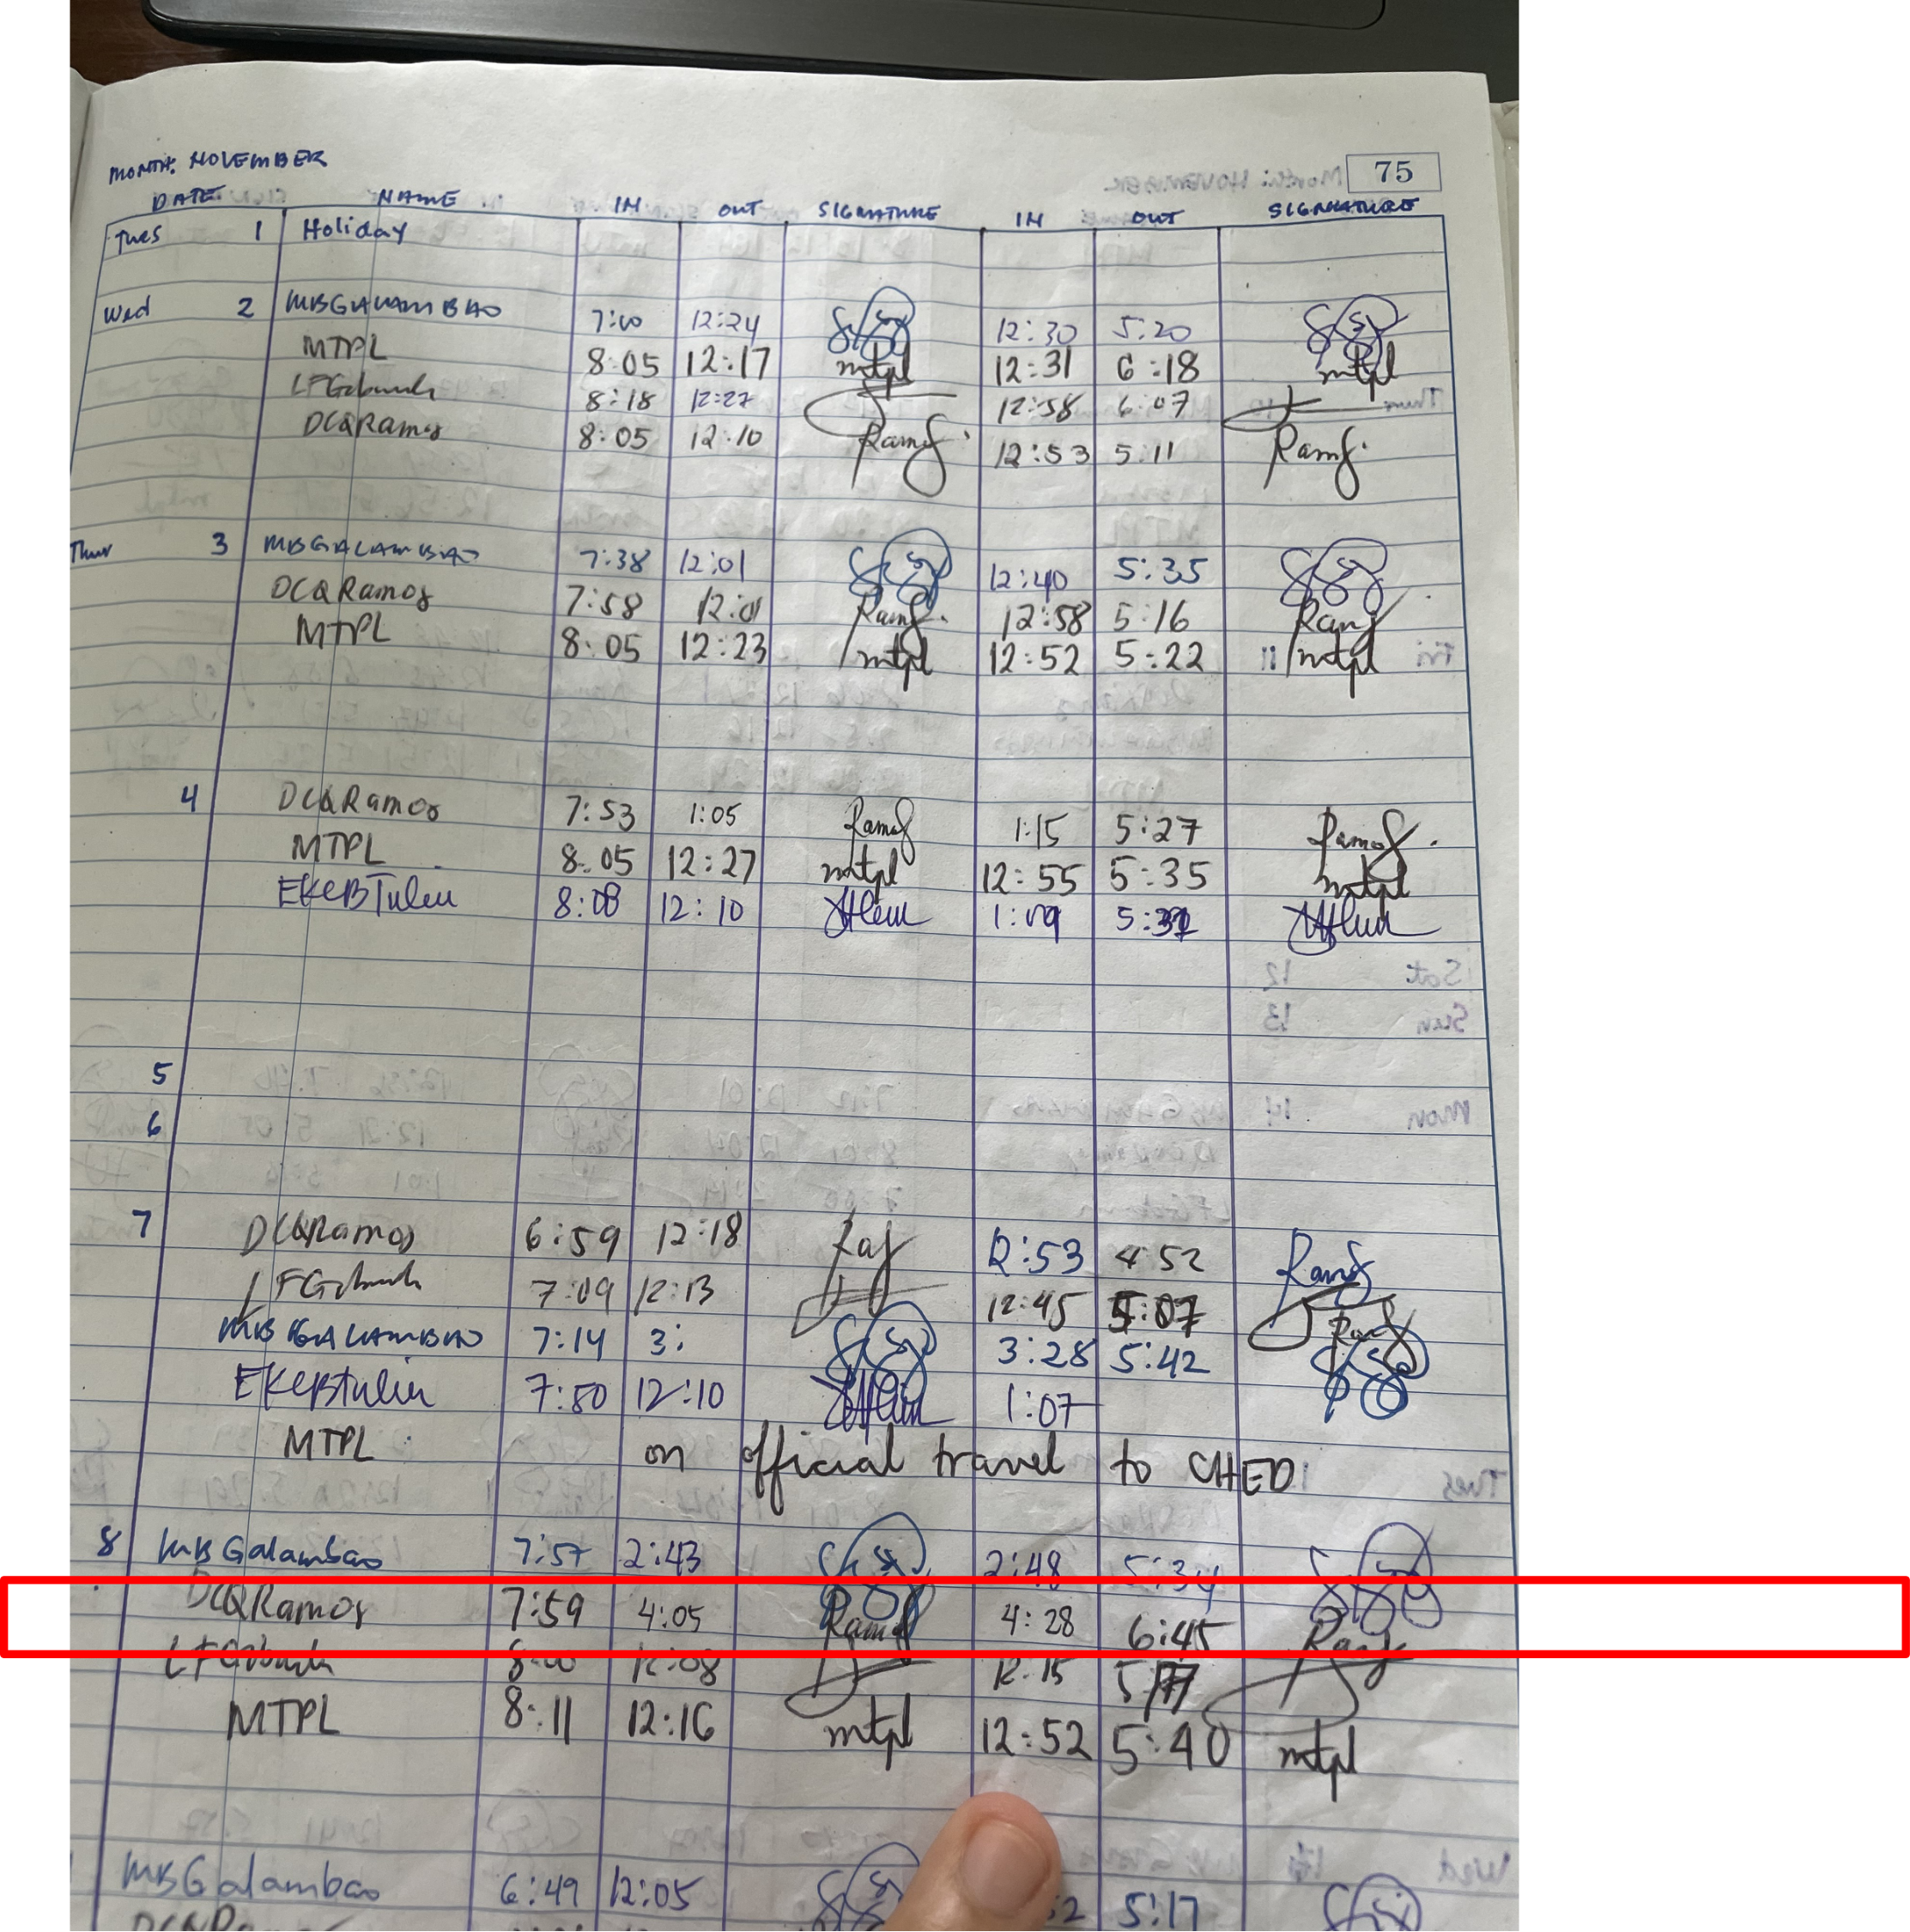 MONTH: NOVEMBER
75
DATE NAME IN OUT SIGNATURE IN OUT SIGNATURE
Tues 1 Holiday
Wed 2 MBGALAMBAO 7:00 12:24 12:30 5:20
MTPL 8:05 12:17 mtpl 12:31 6:18 mtpl
8:18 12:27 12:58 6:07
DCQRamos 8:05 12:10 Ramos 12:53 5:11 Ramos
Thur 3 MBGALAMBAO 7:38 12:01 12:40 5:35
DCQRamos 7:58 12:01 Ramos 12:58 5:16 Ramos
MTPL 8:05 12:23 mtpl 12:52 5:22 mtpl
4 DCQRamos 7:53 1:05 Ramos 1:15 5:27 Ramos
MTPL 8:05 12:27 mtpl 12:55 5:35 mtpl
EKEBTulin 8:08 12:10 1:09
5
6
7 DCQRamos 6:59 12:18 12:53 4:52 Ramos
7:09 12:13 12:45 5:07
MBGALAMBAO 7:14 3: 3:28 5:42
EKEBTulin 7:50 12:10 1:07
MTPL on official travel to CHED
8 MBGalambao 7:57 2:43 2:48 5:34
DCQRamos 7:59 4:05 Ramos 4:28 6:45
8:00 12:08 12:15
MTPL 8:11 12:16 mtpl 12:52 5:40 mtpl
MBGalambao 6:49 12:05 5:17